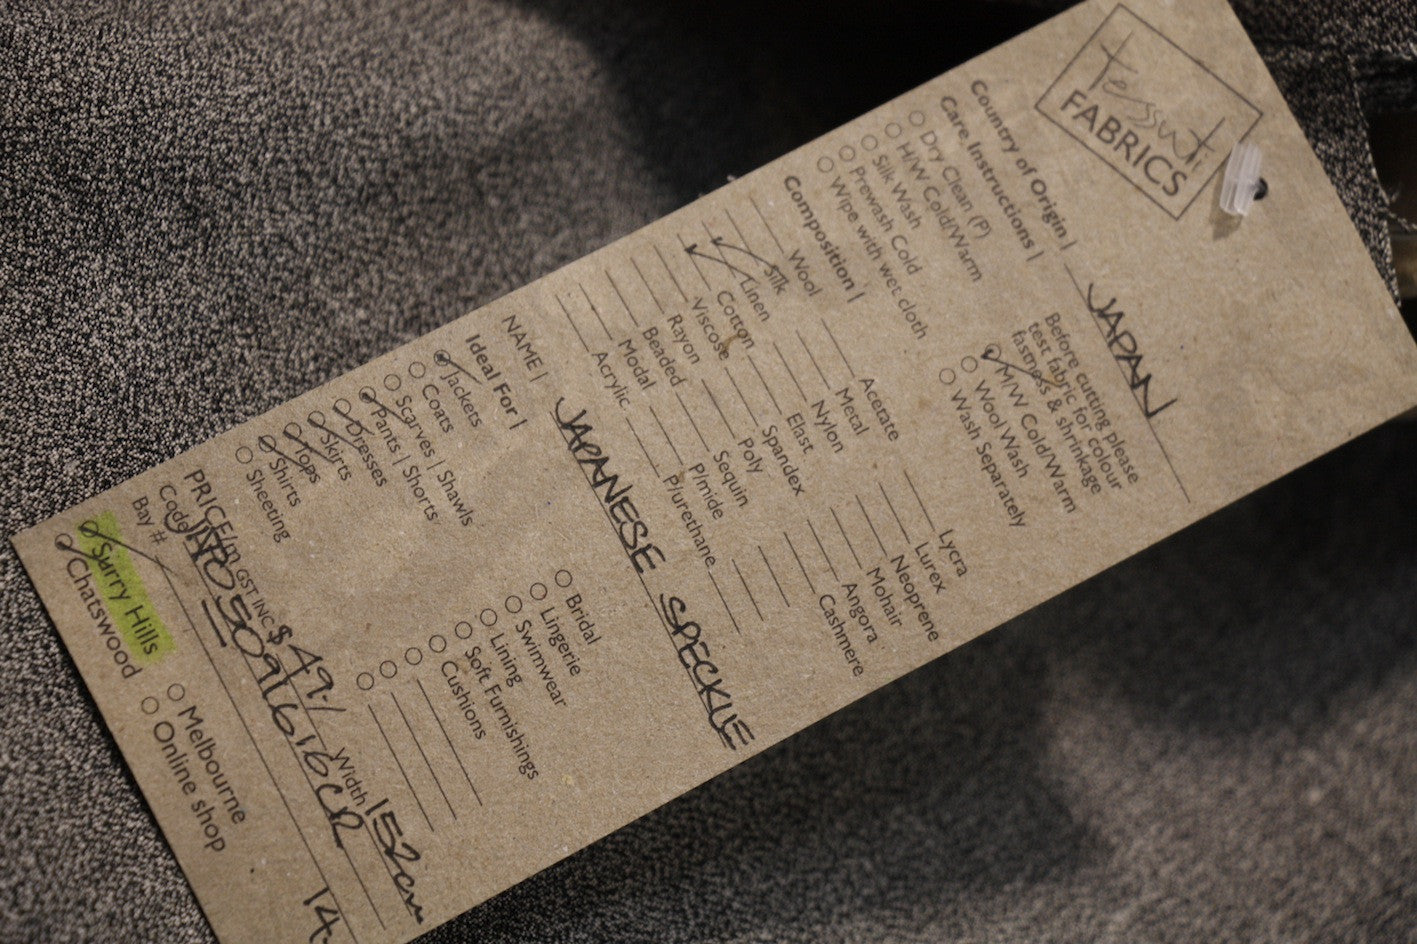 tessuti
FABRICS
Country of Origin | JAPAN
Care Instructions |
Dry Clean (P)
H/W Cold/Warm
Silk Wash
Prewash Cold
Wipe with wet cloth
Before cutting please
test fabric for colour
fastness & shrinkage
M/W Cold/Warm
Wool Wash
Wash Separately
Composition |
Wool
Silk
Linen
Cotton
Viscose
Rayon
Beaded
Modal
Acrylic
Acetate
Metal
Nylon
Elast
Spandex
Poly
Sequin
P/mide
P/urethane
Lycra
Lurex
Neoprene
Mohair
Angora
Cashmere
NAME | JAPANESE SPECKLE
Ideal For |
Jackets
Coats
Scarves | Shawls
Pants | Shorts
Dresses
Skirts
Tops
Shirts
Sheeting
Bridal
Lingerie
Swimwear
Lining
Soft Furnishings
Cushions
PRICE/m GST INC $49./ Width 152cm
Code
Bay # 14.
Surry Hills
Chatswood
Melbourne
Online shop